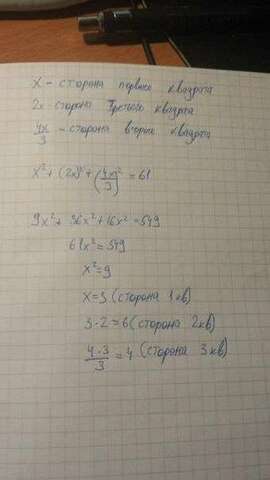 x - сторона первого квадрата
2x сторона третьего квадрата
4x/3 - сторона второго квадрата
x² + (2x)² + (4x/3)² = 61
9x² + 36x² + 16x² = 549
61x² = 549
x² = 9
x = 3 (сторона 1 кв)
3 · 2 = 6 (сторона 2 кв)
4 · 3/3 = 4 (сторона 3 кв)